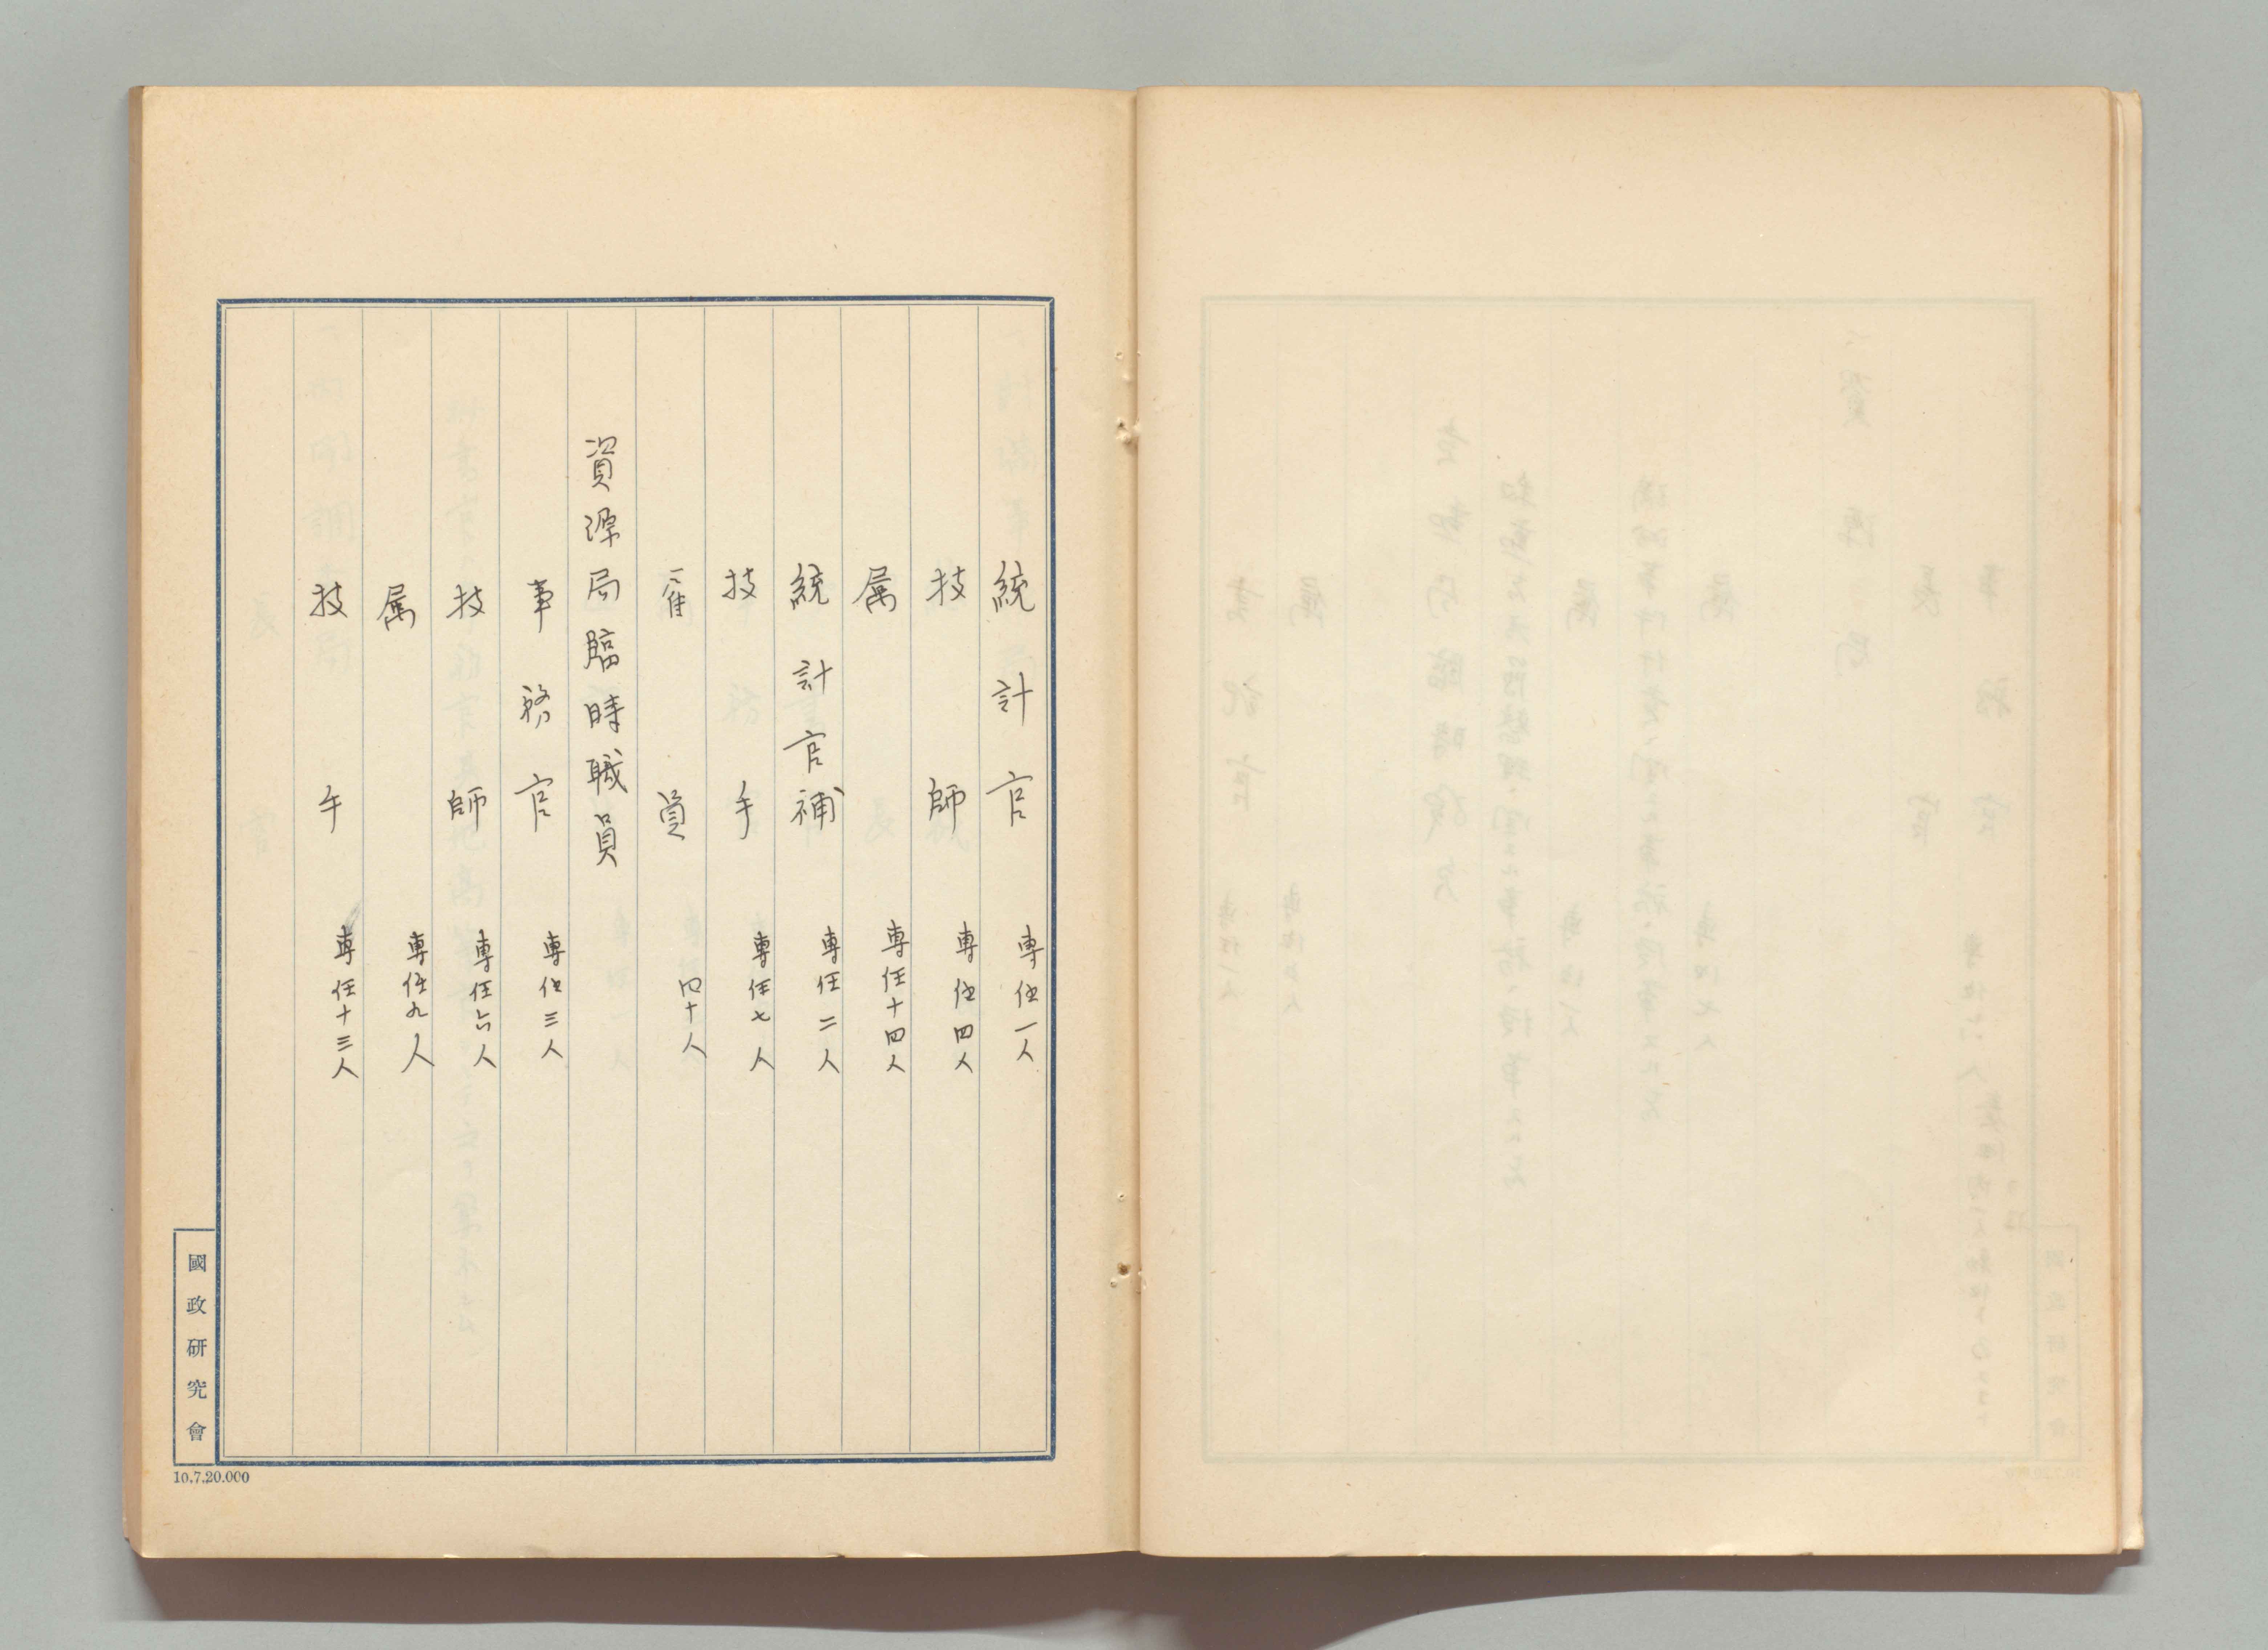 統計官 專任一人
技師 專任四人
属 專任十四人
統計官補 專任二人
技手 專任七人
雇員 四十人
資源局臨時職員
事務官 專任三人
技師 專任六人
属 專任九人
技手 專任十三人
國政研究會
10.7.20.000